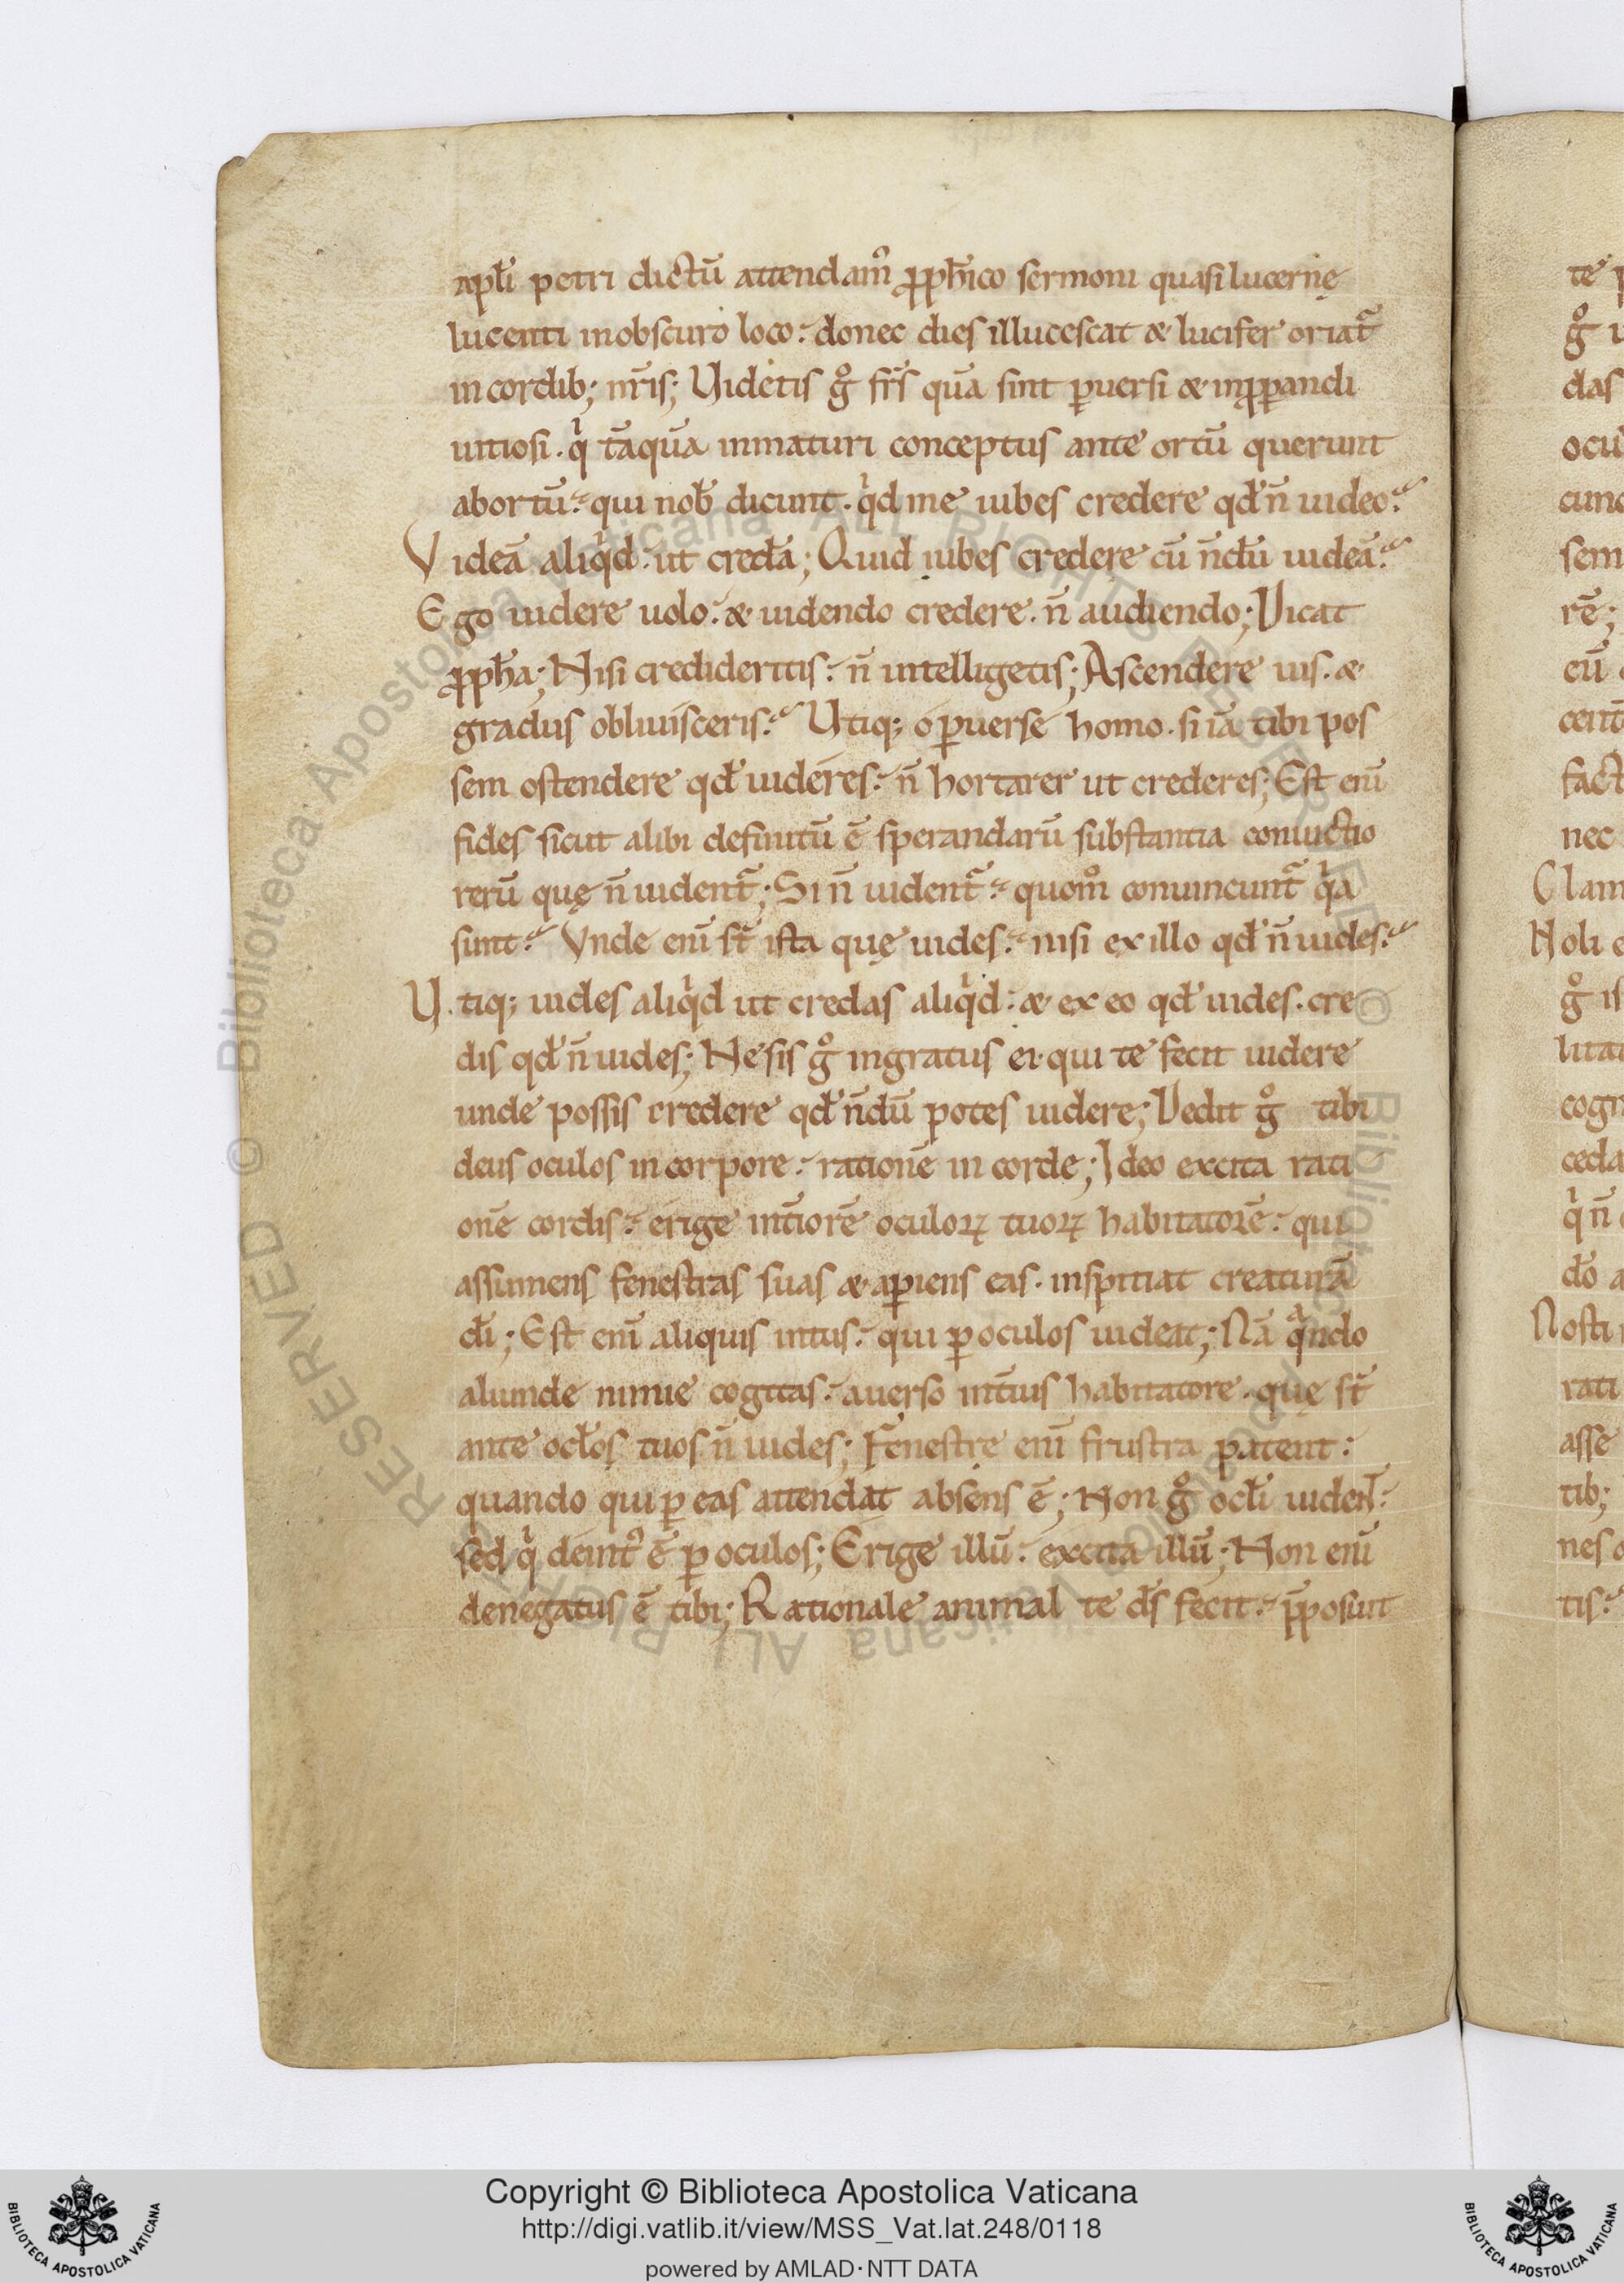 apłi petri dictū attendam᷒ ꝓph̄ico sermoni quasi lucernę
lucenti inobscuro loco. donec dies illucescat & lucifer oriat᷑
in cordib; nr̄is; Videtis g̊ fr̄s quā sint ꝑuersi & inꝓꝑandi
uitiosi. qͥ tāquā inmaturi conceptus ante ortū querunt
abortū. qui nob̄ dicunt. qͥd me iubes credere qđ n̄ uideo.
Videā aliqͥd. ut credā; Quid iubes credere cū n̄dū uideā.
Ego uidere uolo. & uidendo credere. n̄ audiendo; Dicat
ꝓph̄a; Nisi credideritis. n̄ intelligetis; Ascendere uis. &
gradus obliuisceris. Utiq; o ꝑuerse homo. si iā tibi pos
sem ostendere qđ uideres. n̄ hortarer ut crederes; Est enī
fides sicut alibi definitū ē sperandarū substantia conuictio
rerū quę n̄ uident᷑; Si n̄ uident᷑. quom̊ conuincunt᷑ qͥa
sunt. Vnde enī st̄ ista quę uides. nisi ex illo qđ n̄ uides.
U. tiq; uides aliqͥd ut credas aliqͥd. & ex eo qđ uides. cre
dis qđ n̄ uides; Ne sis g̊ ingratus ei. qui te fecit uidere
unde possis credere qđ n̄dū potes uidere; Dedit g̊ tibi
deus oculos in corpore. rationē in corde; Ideo excita rati
onē cordis. erige int̄iorē oculoꝝ tuoꝝ habitatorē. qui
assumens fenestras suas & aꝑiens eas. inspitiat creaturā
dī; Est enī aliquis intus. qui ꝑ oculos uideat; Nā qͣndo
aliunde nimie cogitas. auerso int̄ius habitatore. quę st̄
ante ocłos tuos n̄ uides; Fenestrę enī frustra patent.
quando qui ꝑ eas attendat absens ē; Non g̊ ocłi uident᷑.
sed qͥ deint᷒ ē ꝑ oculos; Erige illū. excita illū; Non enī
denegatus ē tibi; Rationale animal te dś fecit. p̄posuit
te
g̊
das
ocu
cunc
sem
rē;
eū
cent
fact
nec
Clam
Noli e
g̊ is
litat
cogn
ceda
qͥ n̄
dō a
Nosti
rati
asse
tib;
nes
tis.
© Biblioteca Apostolica Vaticana ALL RIGHTS RESERVED
Copyright © Biblioteca Apostolica Vaticana
http://digi.vatlib.it/view/MSS_Vat.lat.248/0118
powered by AMLAD·NTT DATA
BIBLIOTECA APOSTOLICA VATICANA
BIBLIOTECA APOSTOLICA VATICANA